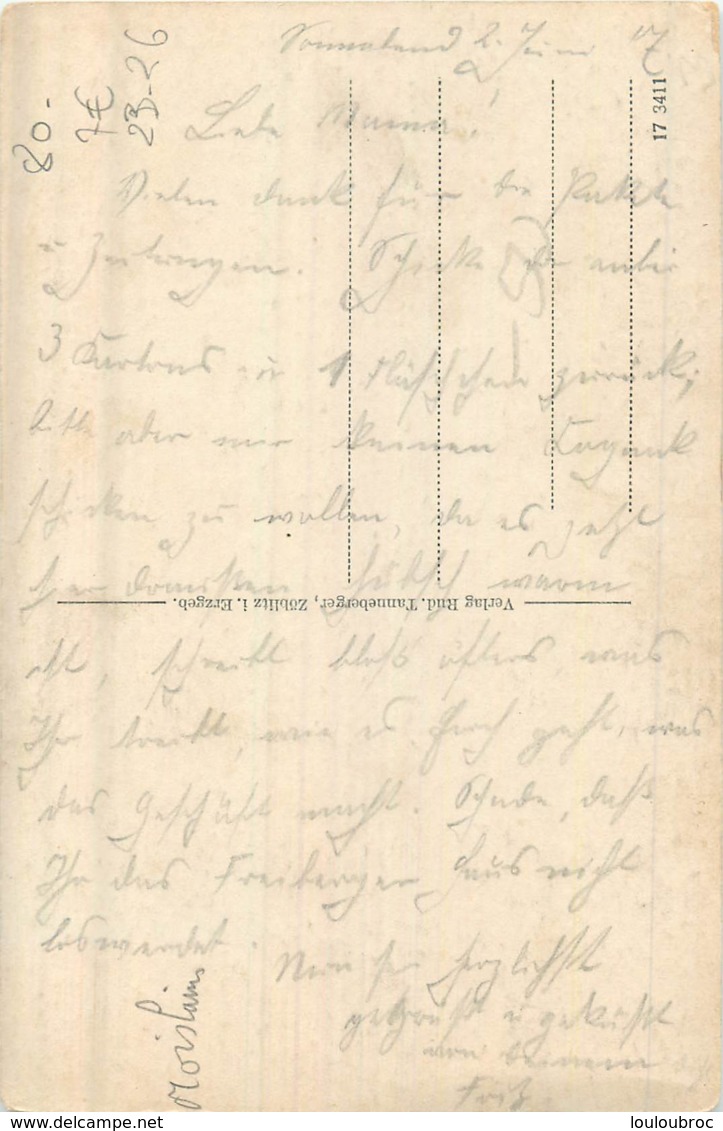 Sonnabend 2. Juni 17
Liebe Mama!
Vielen Dank für die Pakete
u Zeitungen. Schicke Dir anbei
3 Kartons u 1 Fläschchen zurück;
bitte aber mir keinen Cognak
schicken zu wollen, da es jetzt
hübsch warm
ist, schreibt bloß öfters, was
Ihr treibt, wie es Euch geht, was
das Geschäft macht. Schade, daß
Ihr das Freiberger Haus nicht
loswerdet.
Nun sei herzlichst
gegrüßt u geküßt
von Deinem
Fritz
Verlag Rud. Tanneberger, Zöblitz i. Erzgeb.
17 3411
80-
7€
23-26
Moislains
louloubroc